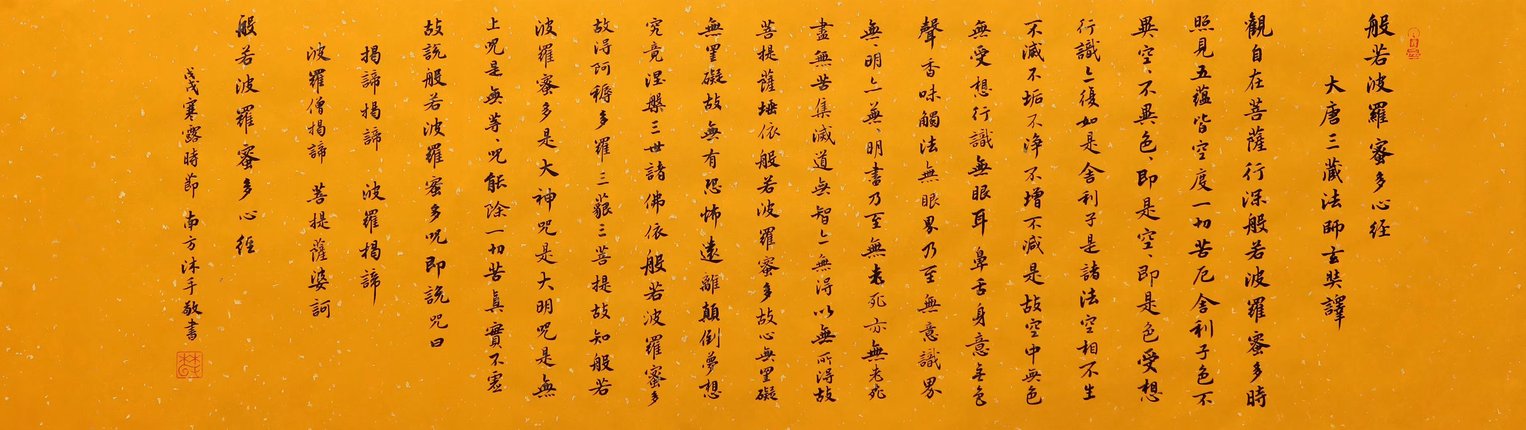 般若波羅蜜多心经
大唐三藏法師玄奘譯
觀自在菩薩行深般若波羅蜜多時
照見五蘊皆空度一切苦厄舍利子色不
異空、不異色、即是空、即是色受想
行識亦復如是舍利子是諸法空相不生
不滅不垢不淨不增不减是故空中無色
無受想行識無眼耳鼻舌身意無色
聲香味觸法無眼界乃至無意識界
無、明亦無、明盡乃至無老死亦無老死
盡無苦集滅道無智亦無得以無所得故
菩提薩埵依般若波羅蜜多故心無罣礙
無罣礙故無有恐怖遠離顛倒夢想
究竟涅槃三世諸佛依般若波羅蜜多
故得阿耨多羅三藐三菩提故知般若
波羅蜜多是大神咒是大明咒是無
上咒是無等、咒能除一切苦真實不虛
故說般若波羅蜜多咒即說咒曰
揭諦揭諦　波羅揭諦
波羅僧揭諦　菩提薩婆訶
般若波羅蜜多心經
戊戌寒露時節 南方沐手敬書